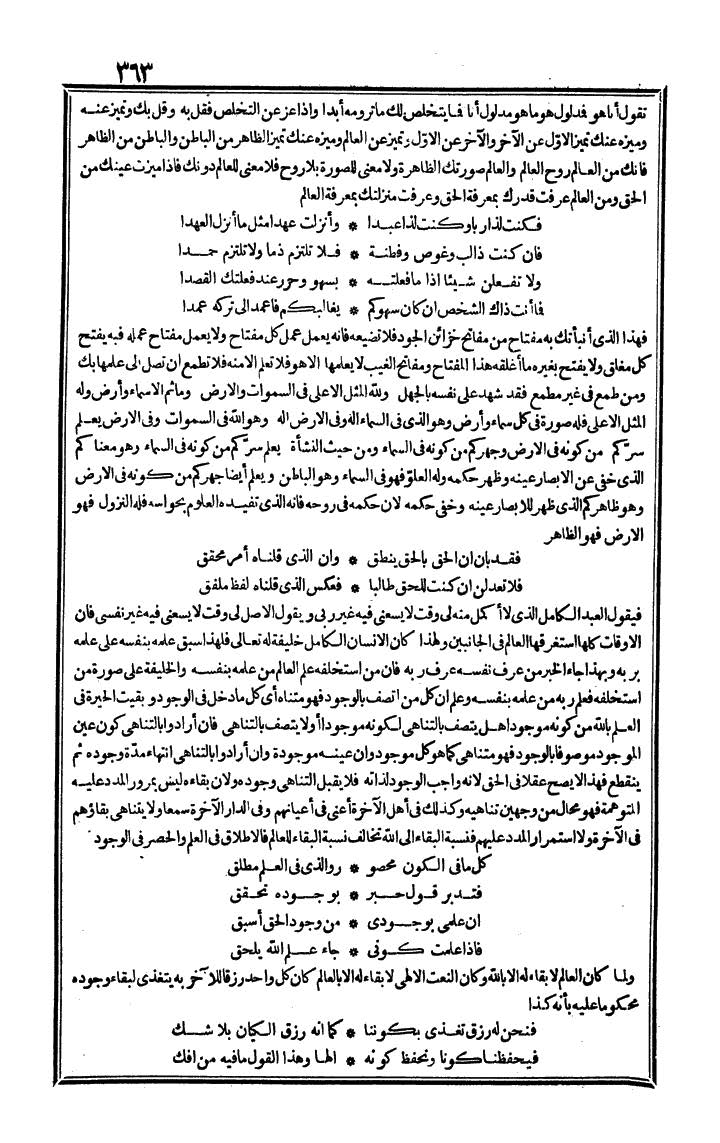 ٣٦٣
تقول أنا هو فمدلول هو ما هو مدلول أنا فما يتخلص لك ما ترومه أبدا واذا عز عن التخلص فقل به وقل بك وتميز عنه
وميزه عنك تميز الاوّل عن الآخر والآخر عن الاوّل وتميز عن العالم وميزه عنك تميز الظاهر من الباطن والباطن من الظاهر
فانك من العالم روح العالم والعالم صورتك الظاهرة ولا معنى للصورة بلا روح فلا معنى للعالم دونك فاذا ميزت عينك من
الحق ومن العالم عرفت قدرك بمعرفة الحق وعرفت منزلتك بمعرفة العالم
فكنت لذا ربا وكنت لذا عبدا * وأنزلت عهدا مثل ما أنزل العهدا
فان كنت ذا لب وغوص وفطنة * فلا تلتزم ذما ولا تلتزم حمدا
ولا تفعلن شيئا اذا ما فعلته * بسهو وحرر عند فعلتك القصدا
فما أنت ذاك الشخص ان كان سهوكم * يغالبكم فاعمد الى تركه عمدا
فهذا الذى أنبأتك به مفتاح من مفاتح خزائن الجود فلا تضيعه فانه يعمل عمل كل مفتاح ولا يعمل مفتاح عمله فبه يفتح
كل مغلق ولا يفتح بغيره ما أغلقه هذا المفتاح ومفاتح الغيب لا يعلمها الا هو فلا تعلم الا منه فلا تطمع ان تصل الى علمها بك
ومن طمع فى غير مطمع فقد شهد على نفسه بالجهل ولله المثل الاعلى فى السموات والارض وما ثم الا سماء وأرض وله
المثل الاعلى فله صورة فى كل سماء وأرض وهو الذى فى السماء اله وفى الارض اله وهو الله فى السموات وفى الارض يعلم
سرّكم من كونه فى الارض وجهركم من كونه فى السماء ومن حيث النشأة يعلم سرّكم من كونه فى السماء وهو معناكم
الذى خفى عن الابصار عينه وظهر حكمه وله العلوّ فهو فى السماء وهو الباطن ويعلم أيضا جهركم من كونه فى الارض
وهو ظاهركم الذى ظهر للابصار عينه وخفى حكمه لان حكمه فى روحه فانه الذى تفيده العلوم بحواسه فله النزول فهو
الارض فهو الظاهر
فقد بان ان الحق بالحق ينطق * وان الذى قلناه أمر محقق
فلا تعدلن ان كنت للحق طالبا * فعكس الذى قلناه لفظ ملفق
فيقول العبد الكامل الذى لا أكمل منه لى وقت لا يسعنى فيه غير ربى ويقول الاصل لى وقت لا يسعنى فيه غير نفسى فان
الاوقات كلها استغرقها العالم فى الجانبين ولهذا كان الانسان الكامل خليفة له تعالى فلهذا سبق علمه بنفسه على علمه
بربه وبهذا جاء الخبر من عرف نفسه عرف ربه فان من استخلفه علم العالم من علمه بنفسه والخليفة على صورة من
استخلفه فعلم ربه من علمه بنفسه وعلم ان كل من اتصف بالوجود فهو متناه أى كل ما دخل فى الوجود وبقيت الحيرة فى
العلم بالله من كونه موجودا هل يتصف بالتناهى لكونه موجودا أو لا يتصف بالتناهى فان أرادوا بالتناهى كون عين
الموجود موصوفا بالوجود فهو متناهى كما هو كل موجود وان عينه موجودة وان أرادوا بالتناهى انتهاء مدّة وجوده ثم
ينقطع فهذا لا يصح عقلا فى الحق لانه واجب الوجود لذاته فلا يقبل التناهى وجوده ولان بقاءه ليس بمرور المدد عليه
المتوهمة فهو محال من وجهين تناهيه وكذلك فى أهل الآخرة أعنى فى أعيانهم وفى الدار الآخرة سمعا ولا يتناهى بقاؤهم
فى الآخرة ولا استمرار المدد عليهم فنسبة البقاء الى الله تخالف نسبة البقاء للعالم فالاطلاق فى العلم والحصر فى الوجود
كل ما فى الكون محصو * ر والذى فى العلم مطلق
فتدبر قول حبر * بوجوده تحقق
ان علمى بوجودى * من وجود الحق أسبق
فاذا علمت كونى * جاء علم الله يلحق
ولما كان العالم لا بقاء له الا بالله وكان النعت الالهى لا بقاء له الا بالعالم كان كل واحد رزقا للآخر به يتغذى لبقاء وجوده
محكوما عليه بأنه كذا
فنحن له رزق تغذى بكوننا * كما انه رزق الكيان بلا شك
فيحفظنا كونا ونحفظ كونه * الها وهذا القول ما فيه من افك